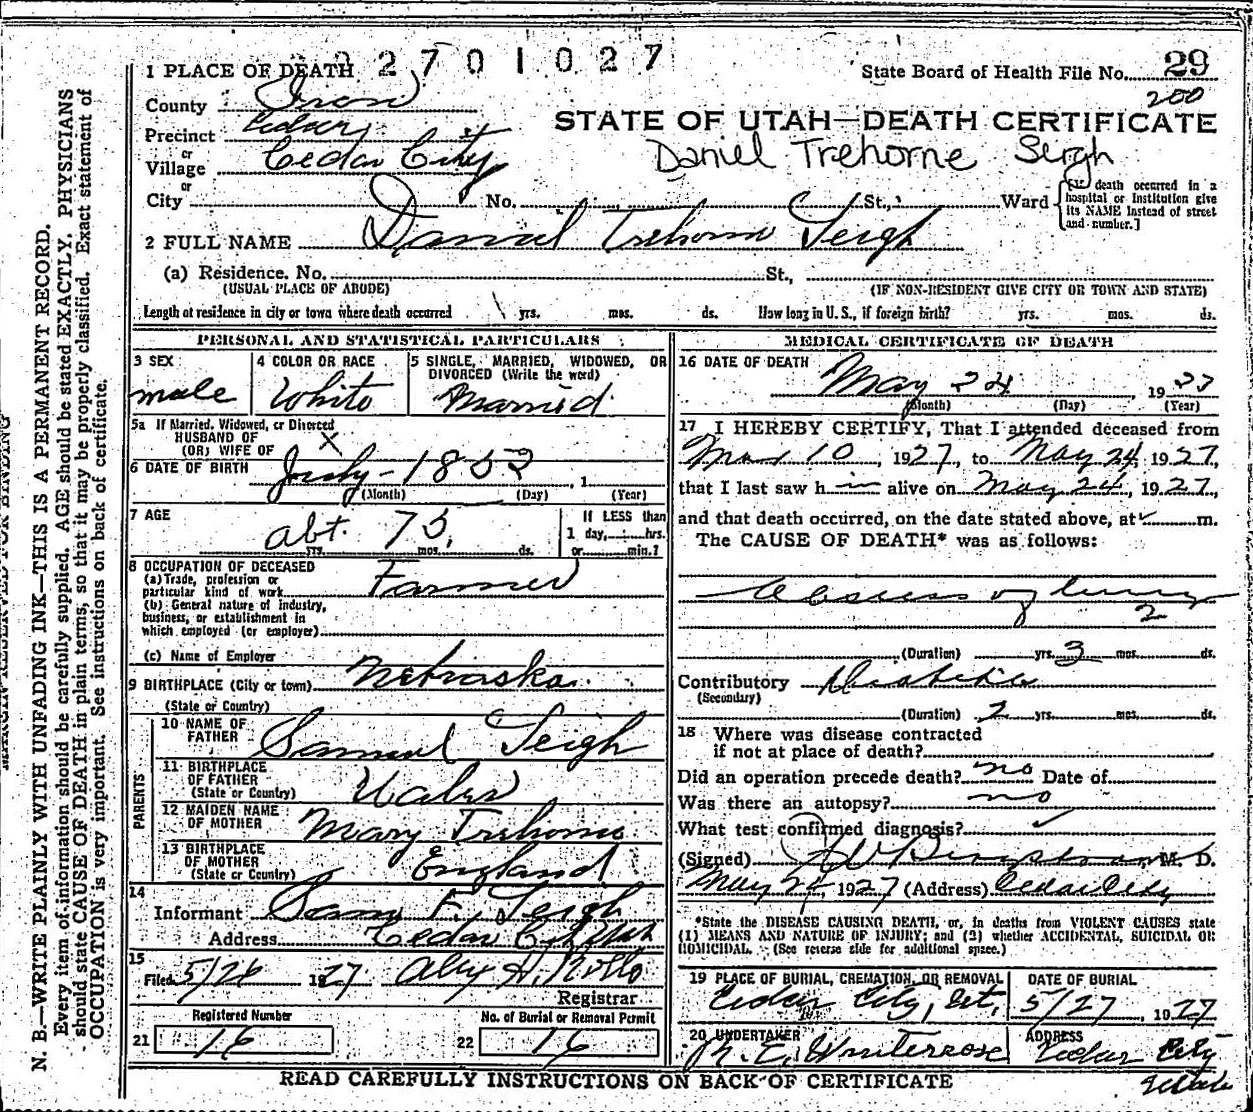 02701027
1 PLACE OF DEATH
State Board of Health File No. 29
200
County Iron
STATE OF UTAH—DEATH CERTIFICATE
Precinct Cedar
or
Village Cedar City
Daniel Trehorne Leigh
or
City No. St., Ward
[If death occurred in a hospital or institution give its NAME instead of street and number.]
2 FULL NAME Daniel Trehorne Leigh
(a) Residence. No. St.,
(USUAL PLACE OF ABODE) (IF NON-RESIDENT GIVE CITY OR TOWN AND STATE)
Length of residence in city or town where death occurred yrs. mos. ds. How long in U. S., if foreign birth? yrs. mos. ds.
PERSONAL AND STATISTICAL PARTICULARS
3 SEX
male
4 COLOR OR RACE
White
5 SINGLE, MARRIED, WIDOWED, OR DIVORCED (Write the word)
Married
5a If Married, Widowed, or Divorced
HUSBAND OF
(OR) WIFE OF X
6 DATE OF BIRTH July - 1852, 1
(Month) (Day) (Year)
7 AGE
abt. 75,
yrs. mos. ds.
If LESS than
1 day, hrs.
or min.?
8 OCCUPATION OF DECEASED
(a) Trade, profession or
particular kind of work Farmer
(b) General nature of industry,
business, or establishment in
which employed (or employer)
(c) Name of Employer
9 BIRTHPLACE (City or town) Nebraska
(State or Country)
PARENTS
10 NAME OF
FATHER Samuel Leigh
11 BIRTHPLACE
OF FATHER
(State or Country) Wales
12 MAIDEN NAME
OF MOTHER Mary Trehorne
13 BIRTHPLACE
OF MOTHER
(State or Country) England
14
Informant Sam F. Leigh
Address Cedar City Utah
15
Filed 5/26 1927 Alex H. Rollo
Registrar
Registered Number
21 16
No. of Burial or Removal Permit
22 16
MEDICAL CERTIFICATE OF DEATH
16 DATE OF DEATH
May 24 1927
(Month) (Day) (Year)
17 I HEREBY CERTIFY, That I attended deceased from
Mar 10, 1927, to May 24, 1927,
that I last saw h im alive on May 24, 1927,
and that death occurred, on the date stated above, at m.
The CAUSE OF DEATH* was as follows:
Abscess of lung
2
(Duration) yrs. 3 mos. ds.
Contributory Diabetes
(Secondary)
(Duration) 2 yrs. mos. ds.
18 Where was disease contracted
if not at place of death?
Did an operation precede death? no Date of
Was there an autopsy? no
What test confirmed diagnosis?
(Signed) M. D.
May 1927 (Address) Cedar City
*State the DISEASE CAUSING DEATH, or, in deaths from VIOLENT CAUSES state
(1) MEANS AND NATURE OF INJURY; and (2) whether ACCIDENTAL, SUICIDAL OR
HOMICIDAL. (See reverse side for additional space.)
19 PLACE OF BURIAL, CREMATION, OR REMOVAL
Cedar City, Ut.
DATE OF BURIAL
5/27, 1927
20 UNDERTAKER
ADDRESS
Cedar City
Utah
READ CAREFULLY INSTRUCTIONS ON BACK OF CERTIFICATE
MARGIN RESERVED FOR BINDING
N. B.—WRITE PLAINLY WITH UNFADING INK—THIS IS A PERMANENT RECORD.
Every item of information should be carefully supplied. AGE should be stated EXACTLY. PHYSICIANS
should state CAUSE OF DEATH in plain terms, so that it may be properly classified. Exact statement of
OCCUPATION is very important. See instructions on back of certificate.